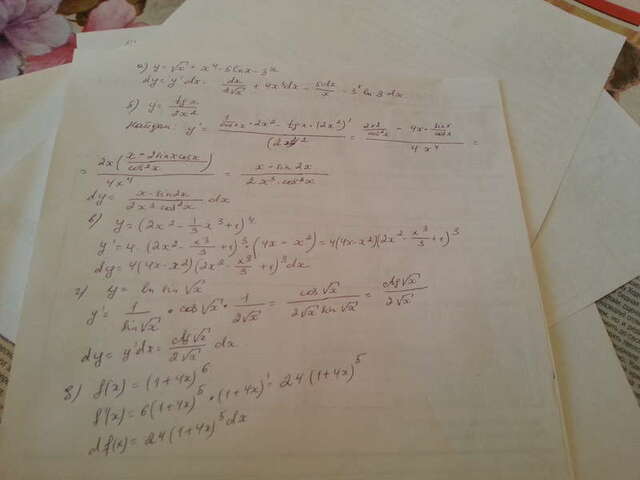 а) y = √x + x⁴ - 5 ln x - 3ˣ
dy = y' dx = dx/(2√x) + 4x³dx - 5dx/x - 3ˣ ln 3 dx
б) y = tg x/(2x²)
Найдём: y' = (1/cos²x · 2x² - tg x · (2x²)')/(2x²)² = (2x²/cos²x - 4x · sin x/cos x)/(4x⁴) =
= 2x((x - 2 sin x cos x)/cos²x)/(4x⁴) = (x - sin 2x)/(2x³ · cos²x)
dy = (x - sin 2x)/(2x³ cos²x) dx
в) y = (2x² - 1/3 x³ + 1)⁴
y' = 4 · (2x² - x³/3 + 1)³ · (4x - x²) = 4(4x - x²)(2x² - x³/3 + 1)³
dy = 4(4x - x²)(2x² - x³/3 + 1)³ dx
г) y = ln sin √x
y' = 1/(sin √x) · cos √x · 1/(2√x) = cos √x/(2√x sin √x) = ctg √x/(2√x)
dy = y'dx = ctg √x/(2√x) dx
д) f(x) = (1+4x)⁶
f'(x) = 6(1+4x)⁵ · (1+4x)' = 24(1+4x)⁵
df(x) = 24(1+4x)⁵ dx